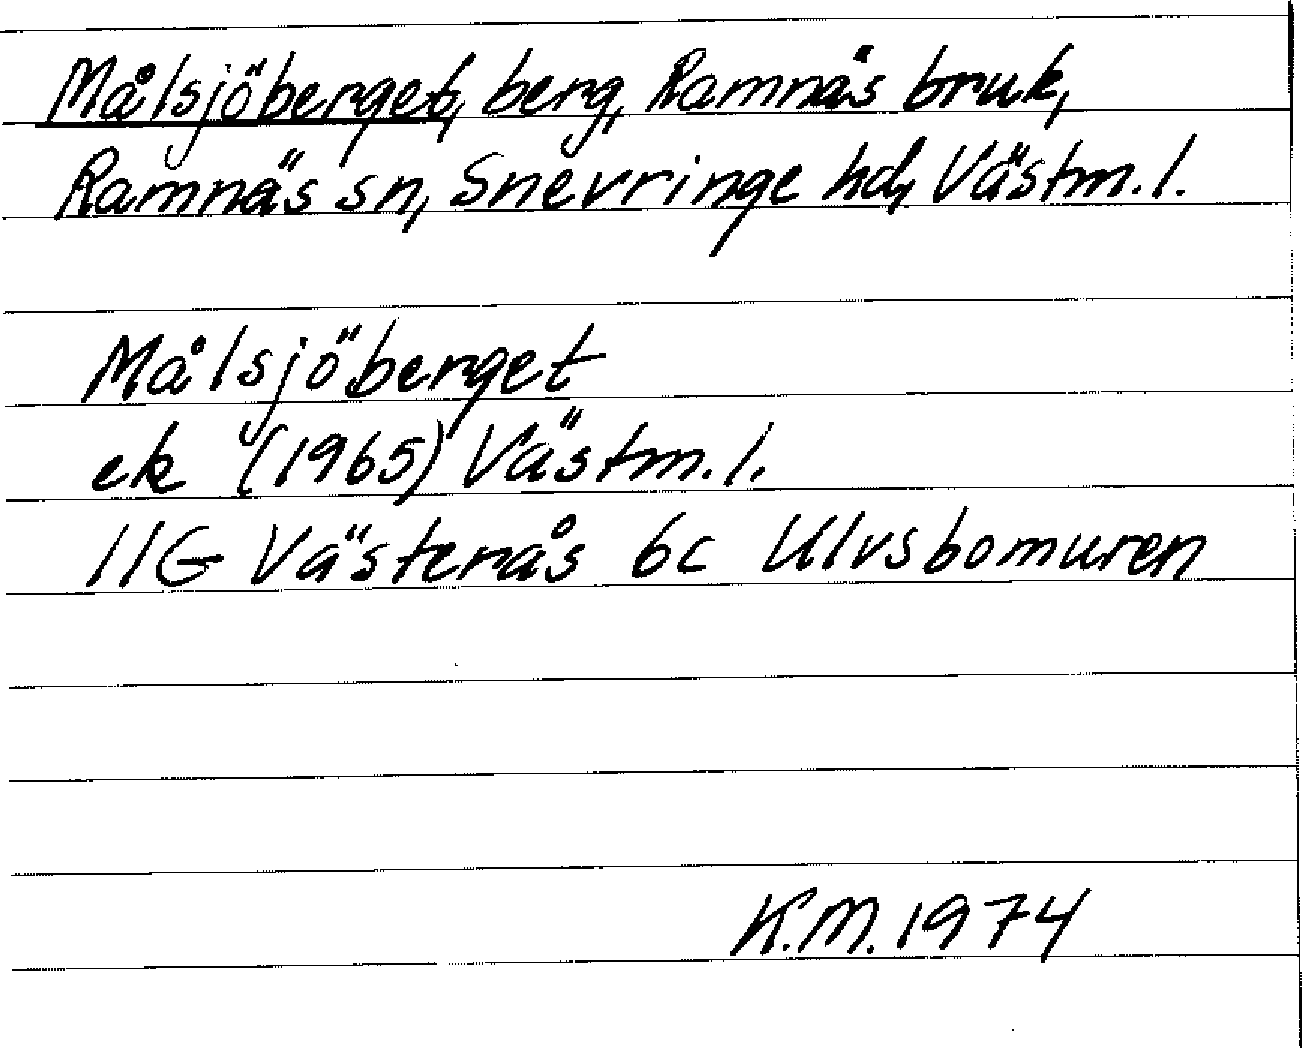 Målsjöberget, berg, Ramnäs bruk,
Ramnäs sn, Snevringe hd, Västm. l.
Målsjöberget
ek (1965) Västm. l.
11G Västerås 6c Ulvsbomuren
K.M. 1974